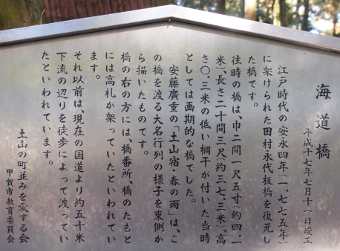 海道橋
平成十七年七月十一日竣工
江戸時代の安永四年（一七七五年）
に架けられた田村永代板橋を復元し
た橋です。
往時の橋は、巾二間一尺五寸（約四.一
米）、長さ二十間三尺（約三七.三米）、高
さ〇.三米の低い欄干が付いた当時
としては画期的な橋でした。
安藤廣重の「土山宿・春の雨」は、こ
の橋を渡る大名行列の様子を東側か
ら描いたものです。
橋の右の方には橋番所、橋のたもと
には高札が架っていたといわれてい
ます。
それ以前は、現在の国道より約五十米
下流の辺りを徒歩によって渡ってい
たといわれています。
土山の町並みを愛する会
甲賀市教育委員会